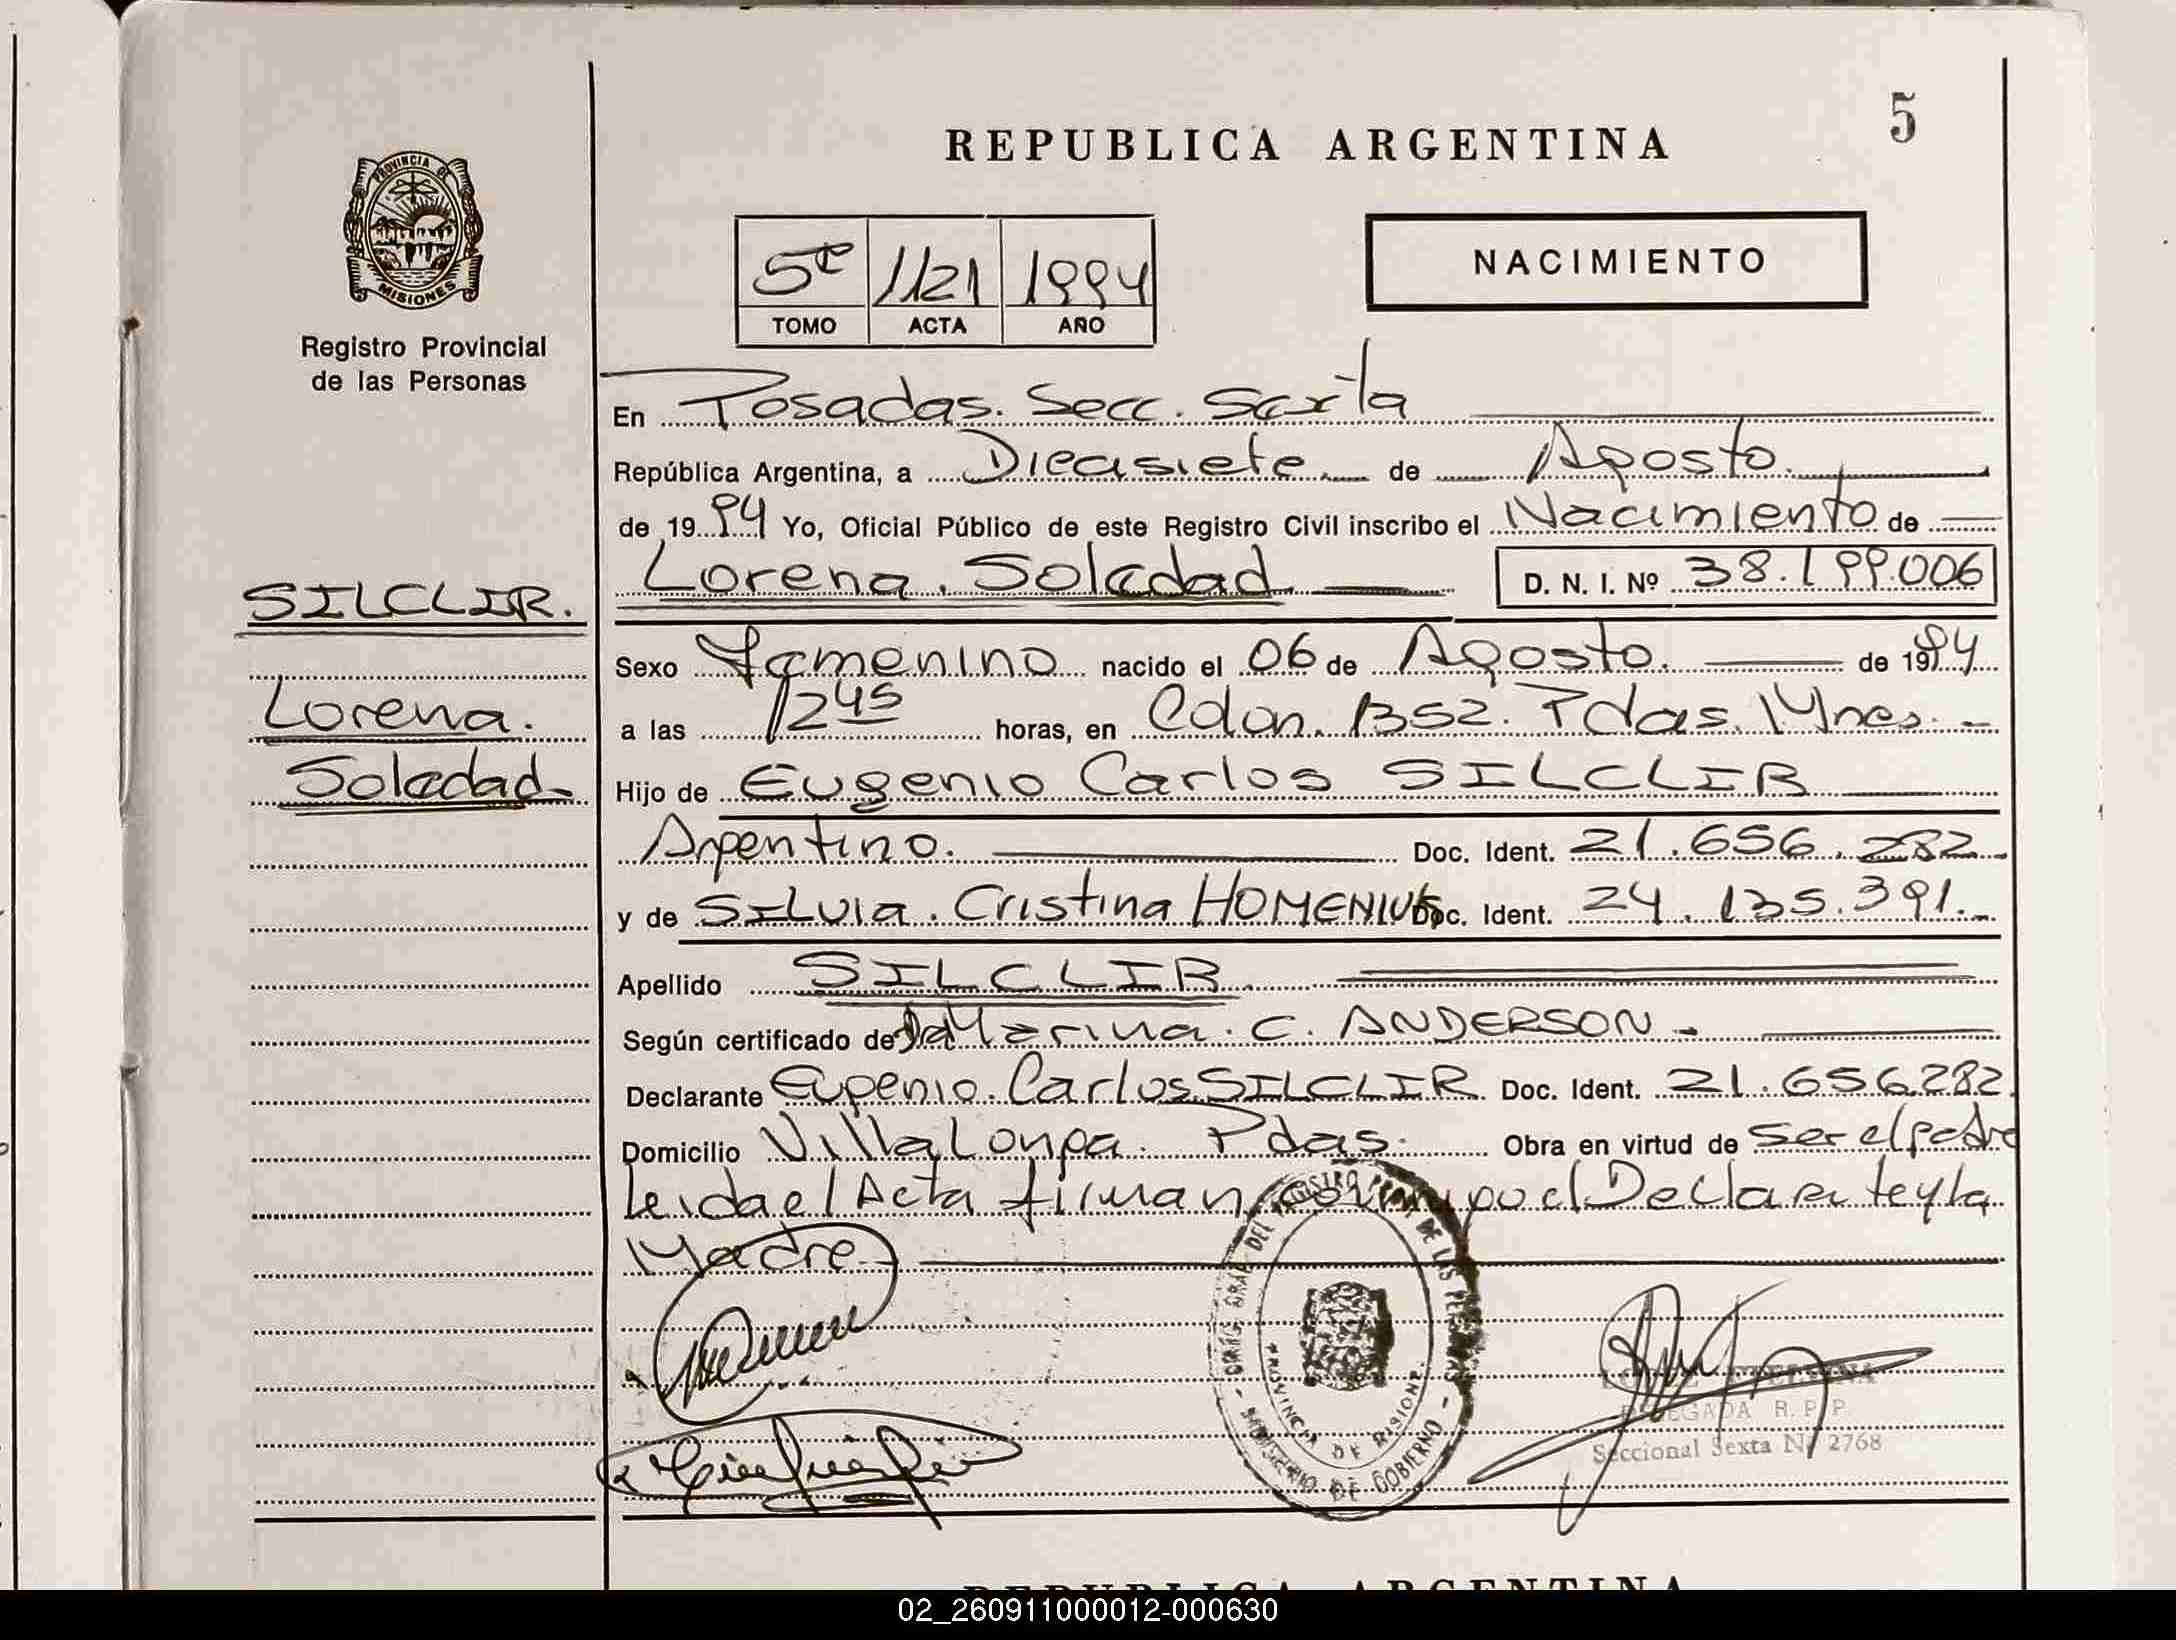 5
REPUBLICA ARGENTINA
NACIMIENTO
PROVINCIA DE
MISIONES
Registro Provincial
de las Personas
5º 1121 1994
TOMO ACTA AÑO
En Posadas. Secc. Sexta
República Argentina, a Diecisiete de Agosto
de 1994 Yo, Oficial Público de este Registro Civil inscribo el Nacimiento de
Lorena. Soledad D. N. I. Nº 38.199.006
SILCLIR.
Lorena.
Soledad
Sexo Femenino nacido el 06 de Agosto. de 1994
a las 12 45 horas, en Colon. 1352. Pdas. Mnes.
Hijo de Eugenio Carlos SILCLIR
Argentino. Doc. Ident. 21.656.282
y de SILvia. Cristina HOMENIUK Doc. Ident. 24.135.391.
Apellido SILCLIR
Según certificado de Marina. C. ANDERSON
Declarante Eugenio. Carlos SILCLIR Doc. Ident. 21.656.282.
Domicilio Villa Longa. Pdas. Obra en virtud de ser el padre
Leida el Acta firman conmigo el Declarante y la
Madre
DEL REGISTRO PROV. DE LAS PERSONAS
MINISTERIO DE GOBIERNO
PROVINCIA DE MISIONES
DELEGADA R. P. P.
Seccional Sexta Nº 2768
REPUBLICA ARGENTINA
02_260911000012-000630